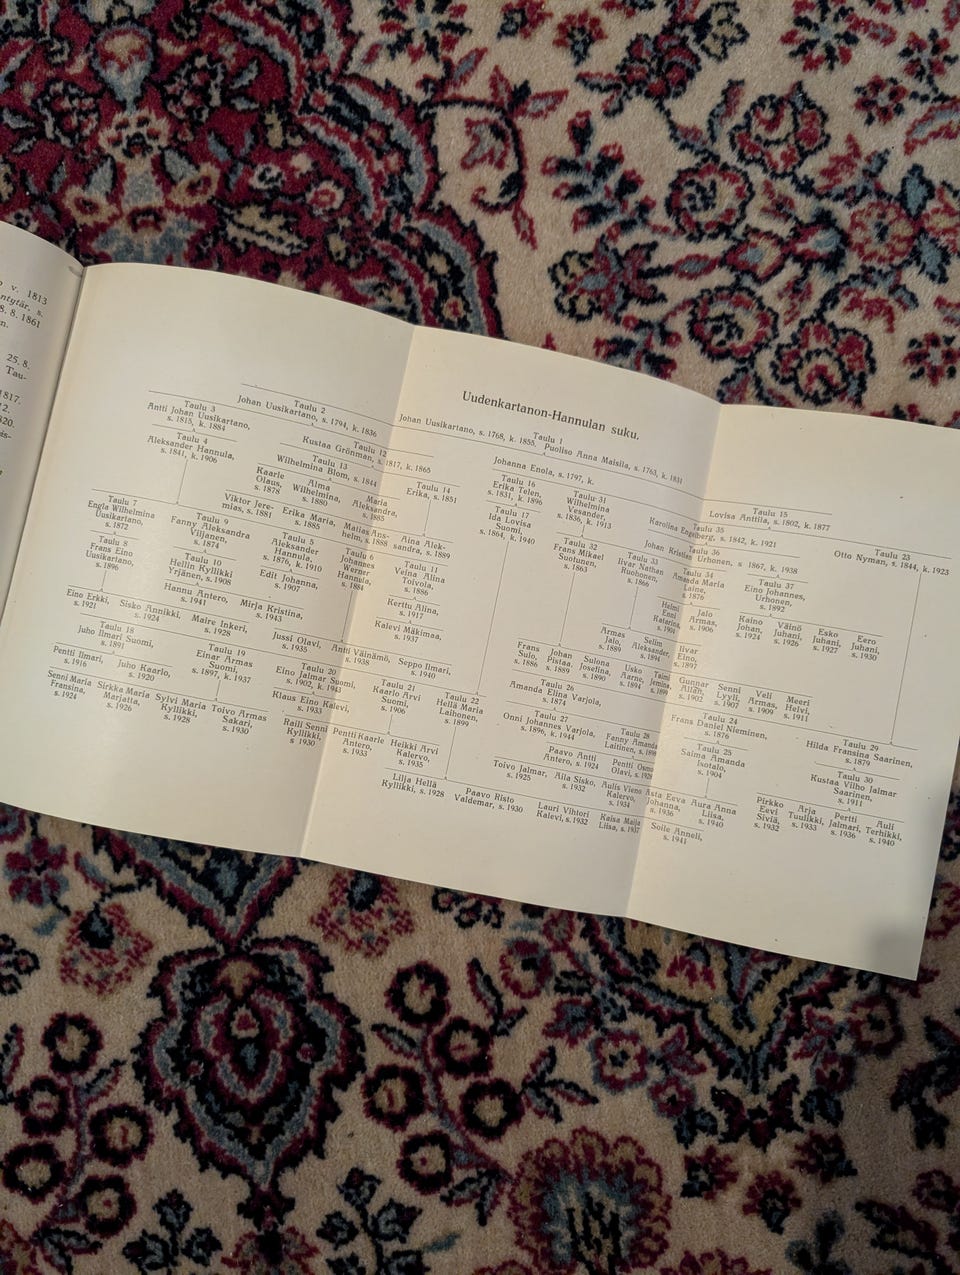 v. 1813
ntytär. s.
8. 8. 1861
n.
25. 8.
Tau-
1817.
12.
820.
is-
Uudenkartanon-Hannulan suku.
Taulu 1
Johan Uusikartano, s. 1768, k. 1855, Puoliso Anna Maisila, s. 1763, k. 1831
Taulu 2
Johan Uusikartano, s. 1794, k. 1836
Johanna Enola, s. 1797, k.
Taulu 15
Lovisa Anttila, s. 1802, k. 1877
Taulu 3
Antti Johan Uusikartano,
s. 1815, k. 1884
Taulu 12
Kustaa Grönman, s. 1817, k. 1865
Taulu 4
Aleksander Hannula,
s. 1841, k. 1906
Taulu 13
Wilhelmina Blom, s. 1844
Taulu 14
Erika, s. 1851
Kaarle
Olaus,
s. 1878
Alma
Wilhelmina,
s. 1880
Maria
Aleksandra,
s. 1885
Viktor Jere-
mias, s. 1881
Erika Maria,
s. 1886
Matias Ans-
helm, s. 1888
Aina Alek-
sandra, s. 1889
Taulu 16
Erika Telen,
s. 1831, k. 1896
Taulu 31
Wilhelmina
Vesander,
s. 1836, k. 1913
Taulu 35
Karolina Engelberg, s. 1842, k. 1921
Taulu 23
Otto Nyman, s. 1844, k. 1923
Taulu 17
Ida Lovisa
Suomi,
s. 1864, k. 1940
Taulu 32
Frans Mikael
Suotunen,
s. 1863
Taulu 33
Iivar Nathan
Ruohonen,
s. 1866
Taulu 36
Johan Kristian Urhonen, s. 1867, k. 1938
Taulu 34
Amanda Maria
Laine,
s. 1876
Taulu 37
Eino Johannes,
Urhonen,
s. 1892
Helmi
Enni
Katarina,
s. 1901
Jalo
Armas,
s. 1906
Kaino
Johan,
s. 1924
Väinö
Juhani,
s. 1926
Esko
Juhani,
s. 1927
Eero
Juhani,
s. 1930
Taulu 7
Engla Wilhelmina
Uusikartano,
s. 1872
Taulu 9
Fanny Aleksandra
Viljanen,
s. 1874
Taulu 5
Aleksander
Hannula,
s. 1876, k. 1910
Taulu 6
Johannes
Werner
Hannula,
s. 1884
Taulu 11
Veina Alina
Toivola,
s. 1886
Taulu 8
Frans Eino
Uusikartano,
s. 1896
Taulu 10
Hellin Kyllikki
Yrjänen, s. 1908
Edit Johanna,
s. 1907
Kerttu Alina,
s. 1917
Hannu Antero,
s. 1941
Mirja Kristina,
s. 1943
Kalevi Mäkimaa,
s. 1937
Eino Erkki,
s. 1921
Sisko Annikki,
s. 1924
Maire Inkeri,
s. 1928
Jussi Olavi,
s. 1935
Antti Väinämö,
s. 1938
Seppo Ilmari,
s. 1940
Frans
Sulo,
s. 1886
Johan
Pistaa,
s. 1889
Sulona
Josefina,
s. 1890
Armas
Jalo,
s. 1889
Selim
Aleksander,
s. 1891
Usko
Aarne,
s. 1894
Taimi
Jemina,
s. 1899
Iivar
Eino,
s. 1897
Gunnar
Allan,
s. 1902
Senni
Lyyli,
s. 1907
Veli
Armas,
s. 1909
Meeri
Helvi,
s. 1911
Taulu 18
Juho Ilmari Suomi,
s. 1891
Taulu 19
Einar Armas
Suomi,
s. 1897, k. 1937
Taulu 20
Eino Jalmar Suomi,
s. 1902, k. 1943
Taulu 21
Kaarlo Arvi
Suomi,
s. 1906
Taulu 22
Hellä Maria
Laihonen,
s. 1899
Taulu 26
Amanda Elina Varjola,
s. 1874
Taulu 24
Frans Daniel Nieminen,
s. 1876
Taulu 29
Hilda Fransina Saarinen,
s. 1879
Pentti Ilmari,
s. 1916
Juho Kaarlo,
s. 1920
Klaus Eino Kalevi,
s. 1933
Taulu 27
Onni Johannes Varjola,
s. 1896, k. 1944
Taulu 28
Fanny Amanda
Laitinen, s. 1898
Taulu 25
Saima Amanda
Isotalo,
s. 1904
Taulu 30
Kustaa Vilho Jalmar
Saarinen,
s. 1911
Senni Maria
Fransina,
s. 1924
Sirkka Maria
Marjatta,
s. 1926
Sylvi Maria
Kyllikki,
s. 1928
Toivo Armas
Sakari,
s. 1930
Raili Senni
Kyllikki,
s. 1930
Pentti Kaarle
Antero,
s. 1933
Heikki Arvi
Kalervo,
s. 1935
Paavo Antti
Antero, s. 1924
Pentti Osmo
Olavi, s. 1926
Toivo Jalmar,
s. 1925
Aila Sisko,
s. 1932
Aulis Vieno
Kalervo,
s. 1934
Asta Eeva
Johanna,
s. 1936
Aura Anna
Liisa,
s. 1940
Pirkko
Eevi
Siviä,
s. 1932
Arja
Tuulikki,
s. 1933
Pertti
Jalmari,
s. 1936
Auli
Terhikki,
s. 1940
Lilja Hellä
Kyllikki, s. 1928
Paavo Risto
Valdemar, s. 1930
Lauri Vihtori
Kalevi, s. 1932
Kaisa Maija
Liisa, s. 1937
Soile Anneli,
s. 1941